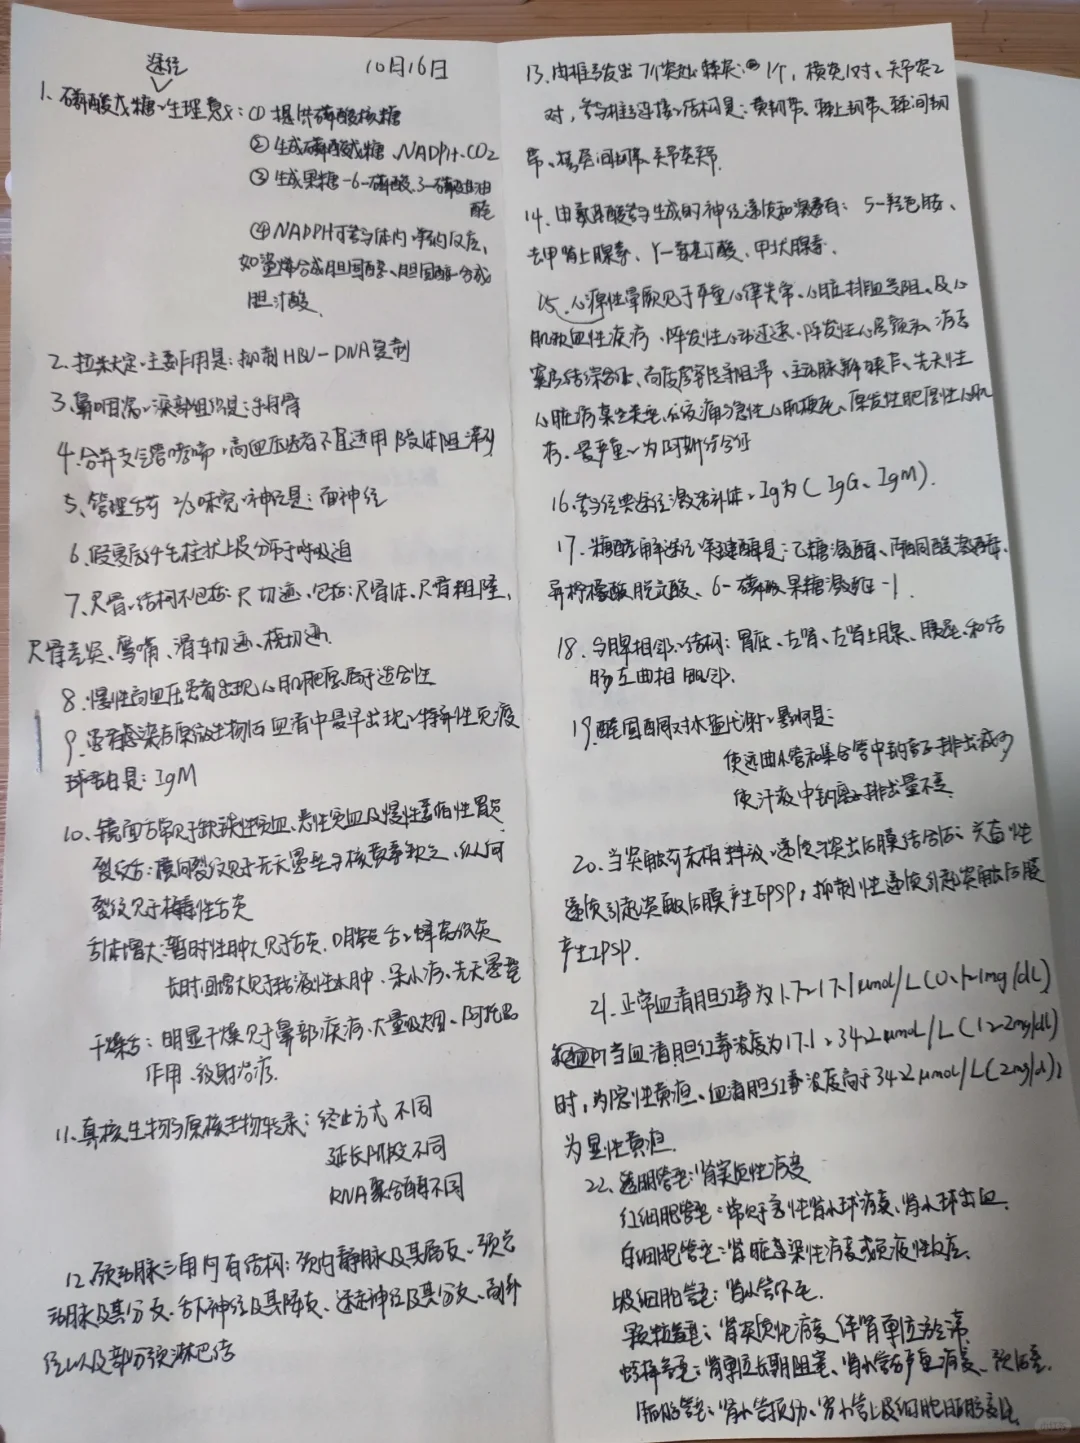 途径
10月16日
1、磷酸戊糖、生理意义:①提供磷酸核糖
②生成磷酸戊糖、NADPH、CO2
③生成果糖-6-磷酸、3-磷酸甘油
醛
④NADPH可参与体内、羟化反应、
如鲨烯合成胆固醇、胆固醇合成
胆汁酸、
2、拉米夫定、主要作用是:抑制HBV-DNA复制
3、鼻咽癌、深部组织是:
4、合并支气管哮喘、高血压患者不宜选用β受体阻滞剂
5、管理舌前2/3味觉、神经是:面神经
6、假复层纤毛柱状上皮分布于呼吸道
7、尺骨、结构不包括:尺切迹、包括:尺骨体、尺骨粗隆、
尺骨茎突、鹰嘴、滑车切迹、桡切迹、
8、慢性高血压患者出现心肌肥厚属于适合性
9、患者感染病原微生物后血清中最早出现、特异性免疫
球蛋白是:IgM
10、镜面舌常见于缺铁性贫血、恶性贫血及慢性萎缩性胃炎
裂纹舌:横向裂纹见于先天愚型与核黄素缺乏、纵向
裂纹见于梅毒性舌炎
舌体增大:暂时性肿大见于舌炎、口腔炎、舌、蜂窝织炎
长时间增大见于粘液性水肿、呆小病、先天愚型
干燥舌:明显干燥见于鼻部疾病、大量吸烟、阿托品
作用、放射治疗、
11、真核生物与原核生物转录:终止方式不同
延长阶段不同
RNA聚合酶不同
12、颈动脉三角内有结构:颈内静脉及其属支、颈总
动脉及其分支、舌下神经及其降支、迷走神经及其分支、副神
经以及部分颈淋巴结
13、由椎弓发出7个突起:棘突:1个,横突1对、关节突2
对,参与椎弓连接、结构是:黄韧带、棘上韧带、棘间韧
带、横突间韧带、关节突关节.
14、由氨基酸参与生成的神经递质和激素有:5-羟色胺、
去甲肾上腺素、γ-氨基丁酸、甲状腺素.
15、心源性晕厥见于严重心律失常、心脏排血受阻、及心
肌缺血性疾病、阵发性心动过速、阵发性心房颤动、病态
窦房结综合征、高度房室传导阻滞、主动脉瓣狭窄、先天性
心脏病某些类型、心绞痛与急性心肌梗死、原发性肥厚性心肌
病、最严重、为阿斯综合征
16、参与经典途径激活补体、Ig为(IgG、IgM).
17、糖酵解途径、关键酶是:己糖激酶、丙酮酸激酶、
异柠檬酸脱氢酸、6-磷酸果糖激酶-1.
18、与脾相邻、结构:胃底、左肾、左肾上腺、胰尾、和结
肠左曲相毗邻.
19、醛固酮对水盐代谢、影响是:
使远曲小管和集合管中钠离子排出减少
使汗液中钠离子排出量不变
20、当突触前末梢释放、递质与突出后膜结合后:兴奋性
递质引起突触后膜产生EPSP,抑制性递质引起突触后膜
产生IPSP.
21、正常血清胆红素为1.7~17.1μmol/L(0.1~1mg/dL)
当血清胆红素浓度为17.1~34.2μmol/L(1~2mg/dl)
时,为隐性黄疸、血清胆红素浓度高于34.2μmol/L(2mg/dl)
为显性黄疸.
22、透明管型:肾实质性病变
红细胞管型:常见于急性肾小球病变、肾小球出血
白细胞管型:肾脏感染性病变或免疫性反应.
上皮细胞管型:肾小管坏死.
颗粒管型:肾实质性病变伴肾单位淤滞
蜡样管型:肾单位长期阻塞、肾小管有严重病变、预后差.
脂肪管型:肾小管损伤、肾小管上皮细胞脂肪变性